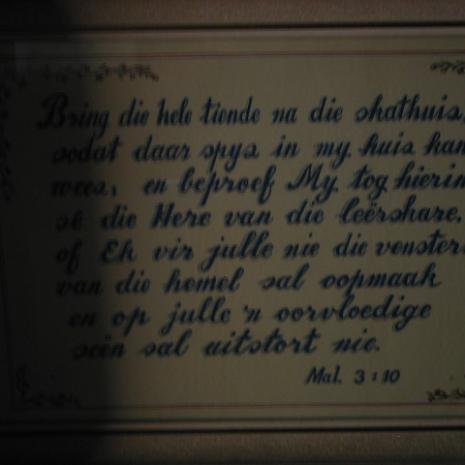 Bring die hele tiende na die skathuis,
sodat daar spys in my huis kan
wees, en beproef My tog hierin
sê die Here van die leërskare.
of Ek vir julle nie die vensters
van die hemel sal oopmaak
en op julle 'n oorvloedige
seën sal uitstort nie.
Mal. 3:10